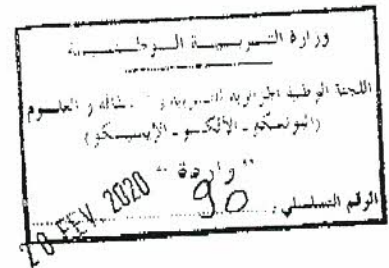 وزارة التربية الوطنية
اللجنة الوطنية الجزائرية للتربية و الثقافة و العلوم
(اليونسكو - الألكسو - الإيسيسكو)
" واردة "
20 FEV 2020
الرقم التسلسلي : 90